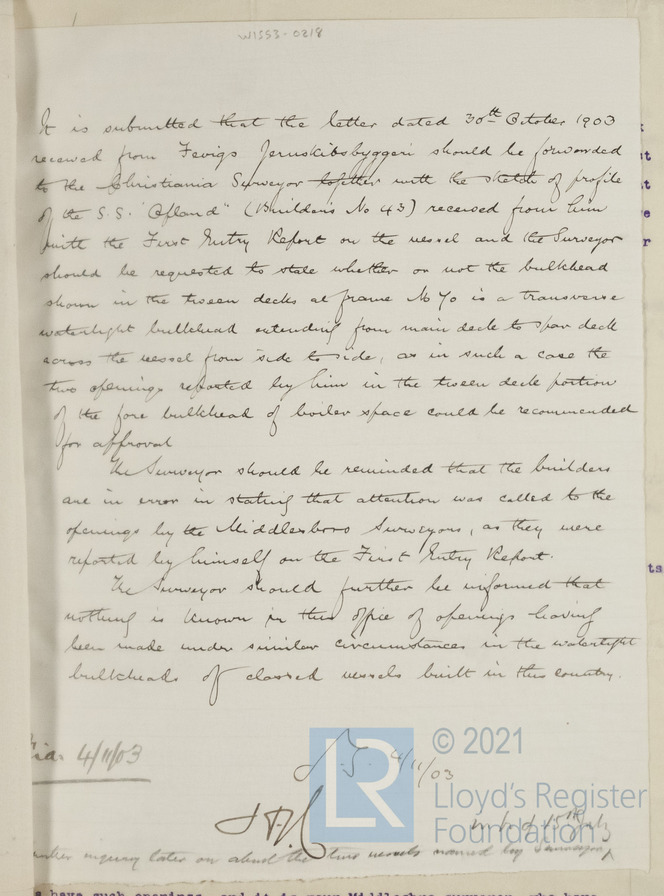 W1553-0218
It is submitted that the letter dated 30th October 1903
received from Fevigs Jernskibsbyggeri should be forwarded
to the Christiania Surveyor together with the sketch of profile
of the S.S. "Ofland" (Builders No 43) received from him
with the First Entry Report on the vessel and the Surveyor
should be requested to state whether or not the bulkhead
shown in the tween decks at frame No 70 is a transverse
watertight bulkhead extending from main deck to spar deck
across the vessel from side to side, as in such a case the
two openings reported by him in the tween deck portion
of the fore bulkhead of boiler space could be recommended
for approval
The Surveyor should be reminded that the builders
are in error in stating that attention was called to the
openings by the Middlesboro Surveyors, as they were
reported by himself on the First Entry Report.
The Surveyor should further be informed that
nothing is known in this office of openings having
been made under similar circumstances in the watertight
bulkheads of classed vessels built in this country.
4/11/03
4/11/03
LR
© 2021
Lloyd's Register
Foundation
inquiry later on about the two vessels named by Surveyor
ts
have such openings, and it is your Middlesbro surveyor, who have